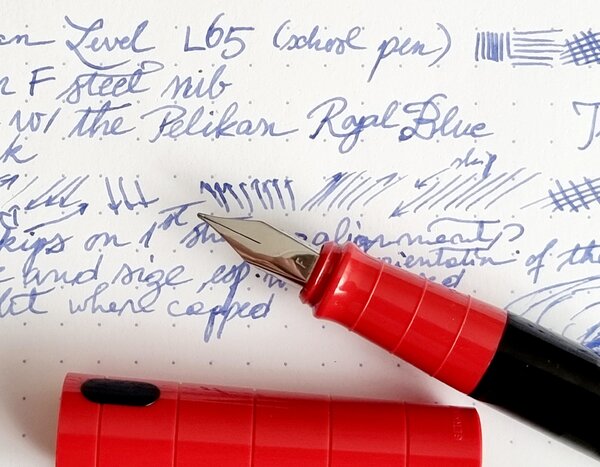 an Level L65 (school pen)
F steel nib
w/ the Pelikan Royal Blue
k
skip
skips on 1st alignment?
e and size, esp. orientation of the
where capped